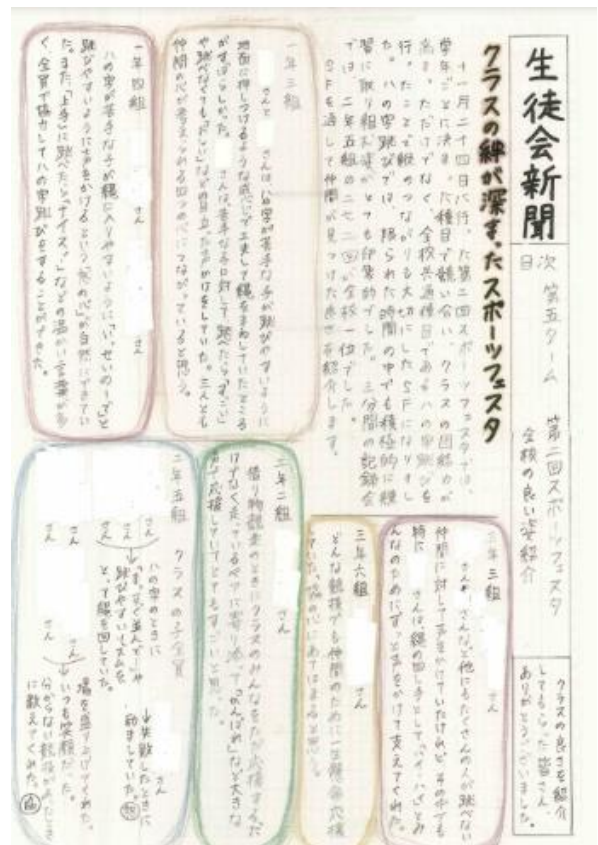 生徒会新聞
目次 第五ターム 第二回スポーツフェスタ
全校の良い姿紹介
クラスの良さを紹介
してもらった皆さん、
ありがとうございました。
クラスの絆が深まったスポーツフェスタ
十一月二十四日に行った第二回スポーツフェスタでは、
学年ごとに決まった種目で競い合い、クラスの団結力が
高まっただけでなく、全校共通種目である八の字跳びを
行ったことで縦のつながりも大切にしたSFになりまし
た。八の字跳びでは、限られた時間の中でも積極的に練
習に取り組む姿がとても印象的でした。三分間の記録会
では、二年五組の二七二回が全校一位でした。
SFを通して仲間が見つけた良さを紹介します。
一年三組
さんと さんは八の字が苦手な子が跳びやすいように
地面に押しつけるような感じで工夫して縄をまわしていたところ
がすばらしかった。 さんは苦手な子に対して、跳べたら「すごい」
や跳べなくても「おしい」などの目立った声かけをしていた。三人とも
仲間の心が考えられる四つの心につながっていると思う。
一年四組 さん さん さん
八の字が苦手な子が縄に入りやすいように「い、せいのーで」と
跳びやすいように声をかけるという「 の心」が自然にできてい
た。また、「上手」に跳べたら「ナイス」などの温かい言葉が多
く、全員で協力して八の字跳びをすることができた。
三年三組 さん
さんや さんなど他にもたくさんの人が跳べない
仲間に対して声をかけていたけれど、その中でも
特に さんは縄の回し手として「ハイ、ハイ」とみ
んなのためにずっと声をかけて支えてくれた。
三年六組 さん
どんな競技でも仲間のために一生懸命応援
していた。 の心にあてはまると思う。
二年二組 さん
借り物競走のときにクラスのみんなをただ応援するだ
けでなく走っているペアに寄り添って「がんばれ」など大きな
声で応援していてとてもすごいと思った。
二年五組 クラスの子全員
八の字のときに
「 並んで」や
跳びやすいリズムを
とって縄を回していた。
さん
さん
さん
さん
↓失敗したときに
励ましていた。
さん
さん
場を盛り上げてくれた。
いつも笑顔だった。
分からない競技があったとき
に教えてくれた。